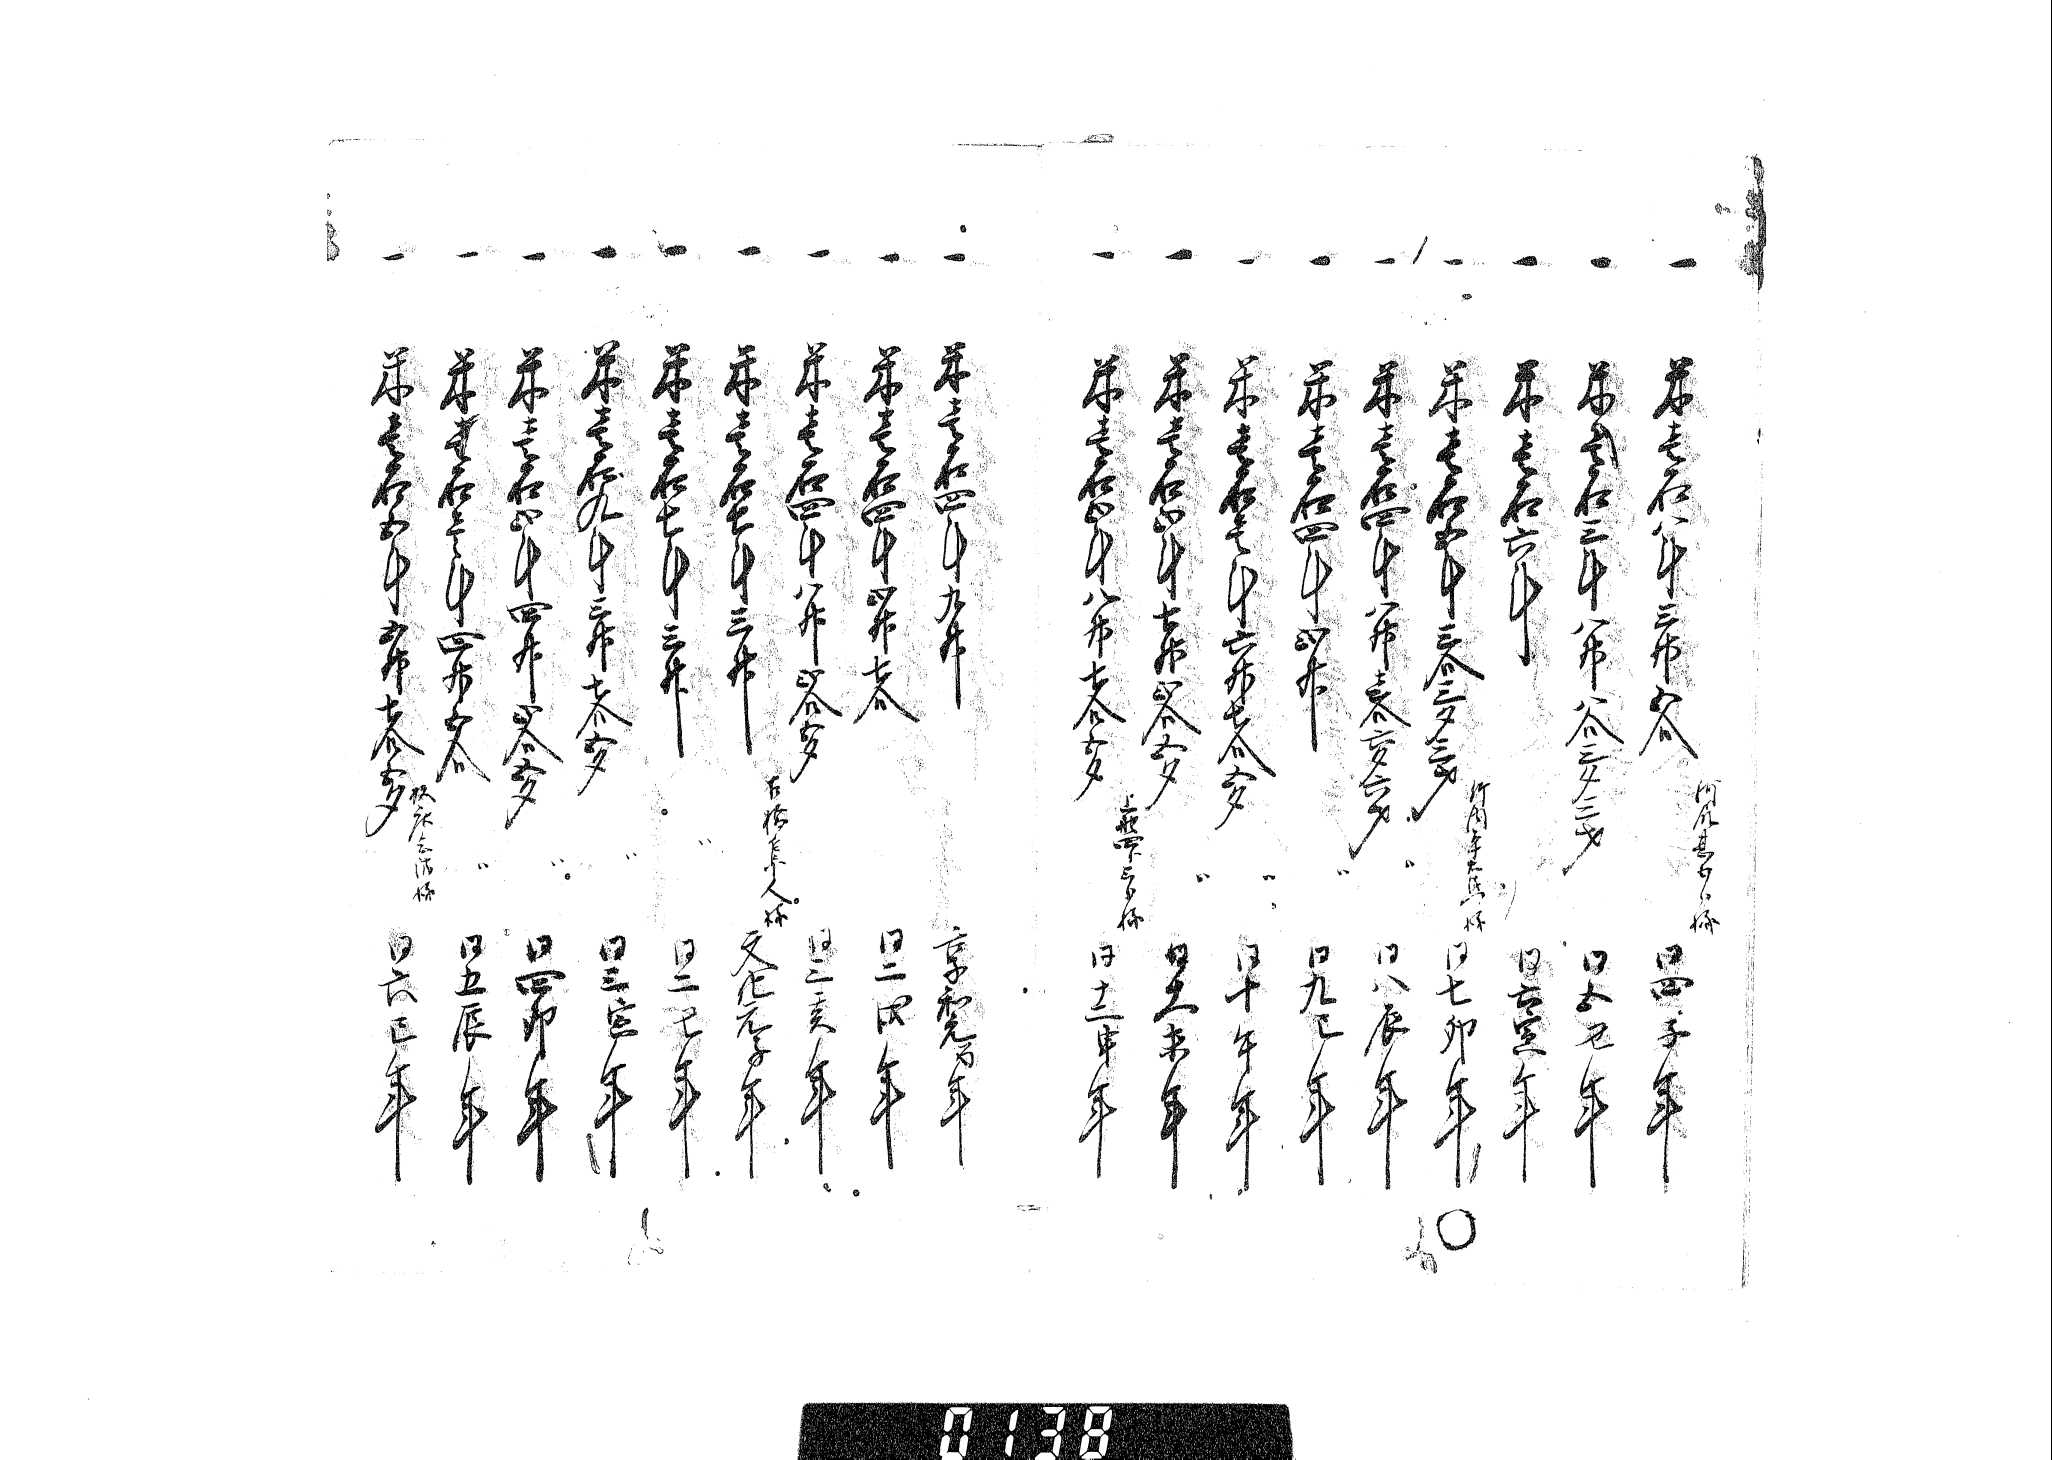 一 米壱石八斗三升五合 河尻甚五郎様 同四子年
一 米石三斗八升八合三夕三才 同五丑年
一 米壱石六斗 同六寅年
一 米壱石五斗三合三夕三才 様 同七卯年
一 米壱石四斗八升壱合六夕六才 〃 同八辰年
一 米壱石四斗弐升 〃 同九巳年
一 米壱石壱斗六升七合五夕 〃 同十午年
一 米壱石弐斗七升弐合五夕 〃 同十一未年
一 米壱石弐斗八升七合五夕 上野四郎三郎様 同十二申年
一 米壱石四斗九升 享和元酉年
一 米壱石四斗弐升七合 同二戌年
一 米壱石四斗八升弐合五夕 同三亥年
一 米壱石七斗三升 古橋隼人様 文化元子年
一 米壱石七斗三升 〃 同二丑年
一 米壱石九斗三升七合五夕 〃 同三寅年
一 米壱石弐斗四升弐合五夕 〃 同四卯年
一 米石三斗四升五合 〃 同五辰年
一 米壱石五斗五升七合五夕 様 同六巳年
0138